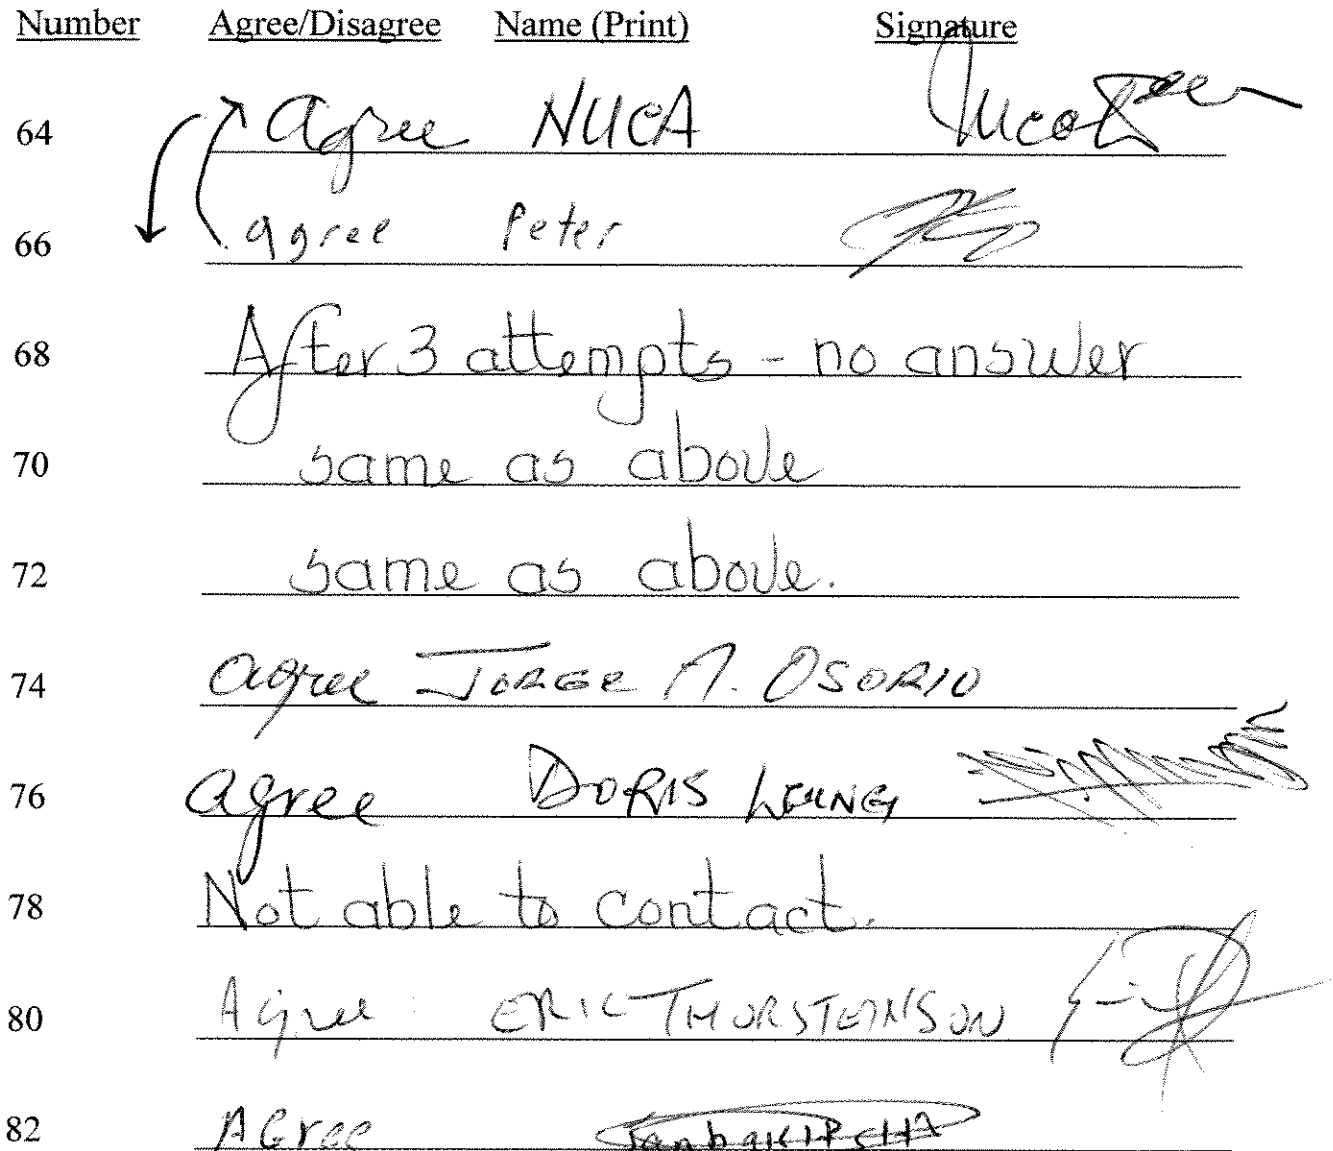 Number Agree/Disagree Name (Print) Signature
64 agree NUCA
66 agree Peter
68 After 3 attempts - no answer
70 same as above
72 same as above.
74 agree JORGE A. OSORIO
76 agree DORIS LEUNG
78 Not able to contact.
80 Agree ERIC THORSTEINSON
82 AGree